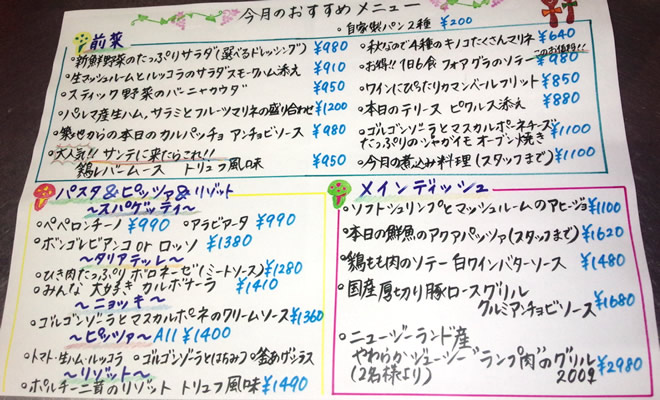 今月のおすすめメニュー
・自家製パン2種 ¥200
前菜
・新鮮野菜のたっぷりサラダ(選べるドレッシング) ¥980
・生マッシュルームとルッコラのサラダスモークハム添え ¥910
・スティック野菜のバーニャカウダ ¥950
・パルマ産生ハム、サラミとフルーツマリネの盛り合わせ ¥1200
・築地からの本日のカルパッチョ アンチョビソース ¥980
・大人気!! サンテに来たらこれ!!
鶏レバームース トリュフ風味 ¥950
・秋なので4種のキノコたくさんマリネ ¥640
・お得!! 1日6食 フォアグラのソテー ¥980
・ワインにぴったりカマンベールフリット ¥850
・本日のテリース ピクルス添え ¥880
・ゴルゴンゾーラとマスカルポーネチーズ
たっぷりのジャガイモ オーブン焼き ¥1100
・今月の煮込み料理(スタッフまで) ¥1100
パスタ&ピッツァ&リゾット
〜スパゲッティ〜
・ペペロンチーノ ¥990 ・アラビアータ ¥990
・ボンゴレビアンコ or ロッソ ¥1380
〜タリアテッレ〜
・ひき肉たっぷり ボロネーゼ(ミートソース) ¥1280
・みんな大好き カルボナーラ ¥1410
〜ニョッキ〜
・ゴルゴンゾーラとマスカルポーネのクリームソース ¥1360
〜ピッツァ〜 All ¥1400
・トマト・生ハム・ルッコラ ・ゴルゴンゾーラとはちみつ ・釜あげシラス
〜リゾット〜
・ポルチーニ茸のリゾット トリュフ風味 ¥1490
メインディッシュ
・ソフトシュリンプとマッシュルームのアヒージョ ¥1100
・本日の鮮魚のアクアパッツァ(スタッフまで) ¥1620
・鶏もも肉のソテー 白ワインバターソース ¥1480
・国産厚切り豚ロースグリル
クルミアンチョビソース ¥1680
・ニュージーランド産
やわらかジューシー ランプ肉のグリル
(2名様より) 200g ¥2980